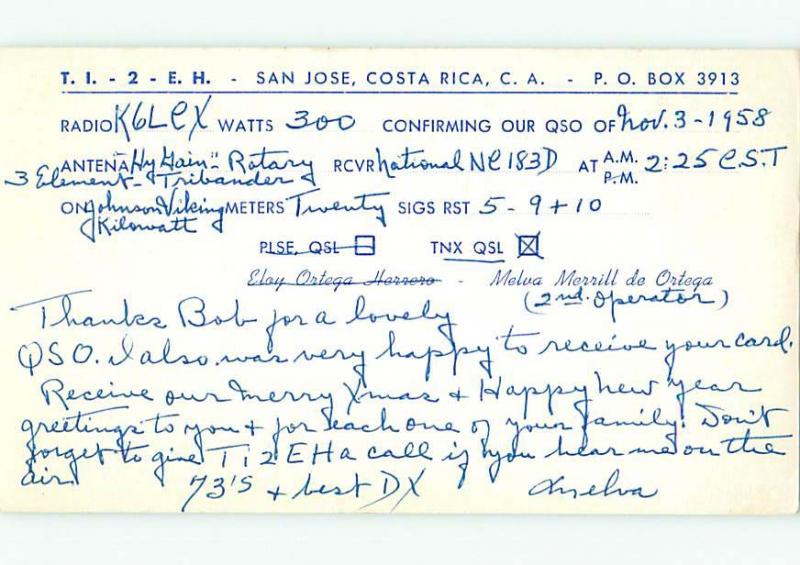 T. I. - 2 - E. H. - SAN JOSE, COSTA RICA, C. A. - P. O. BOX 3913
RADIO K6LCX WATTS 300 CONFIRMING OUR QSO OF Nov. 3-1958
ANTENA "Hy Gain" - Rotary RCVR National NC183D AT A.M. P.M. 2:25 C.S.T
3 Element - Tribander
ON Johnson Viking METERS Twenty SIGS RST 5 - 9 + 10
Kilowatt
PLSE, QSL TNX QSL
Eloy Ortega Herrero - Melva Merrill de Ortega
(2nd. Operator)
Thanks Bob for a lovely
QSO. I also was very happy to receive your card.
Receive our Merry Xmas + Happy New Year
greetings to you + for each one of your family. Don't
forget to give Ti2EH a call if you hear me on the
air.
73's + best DX Melva